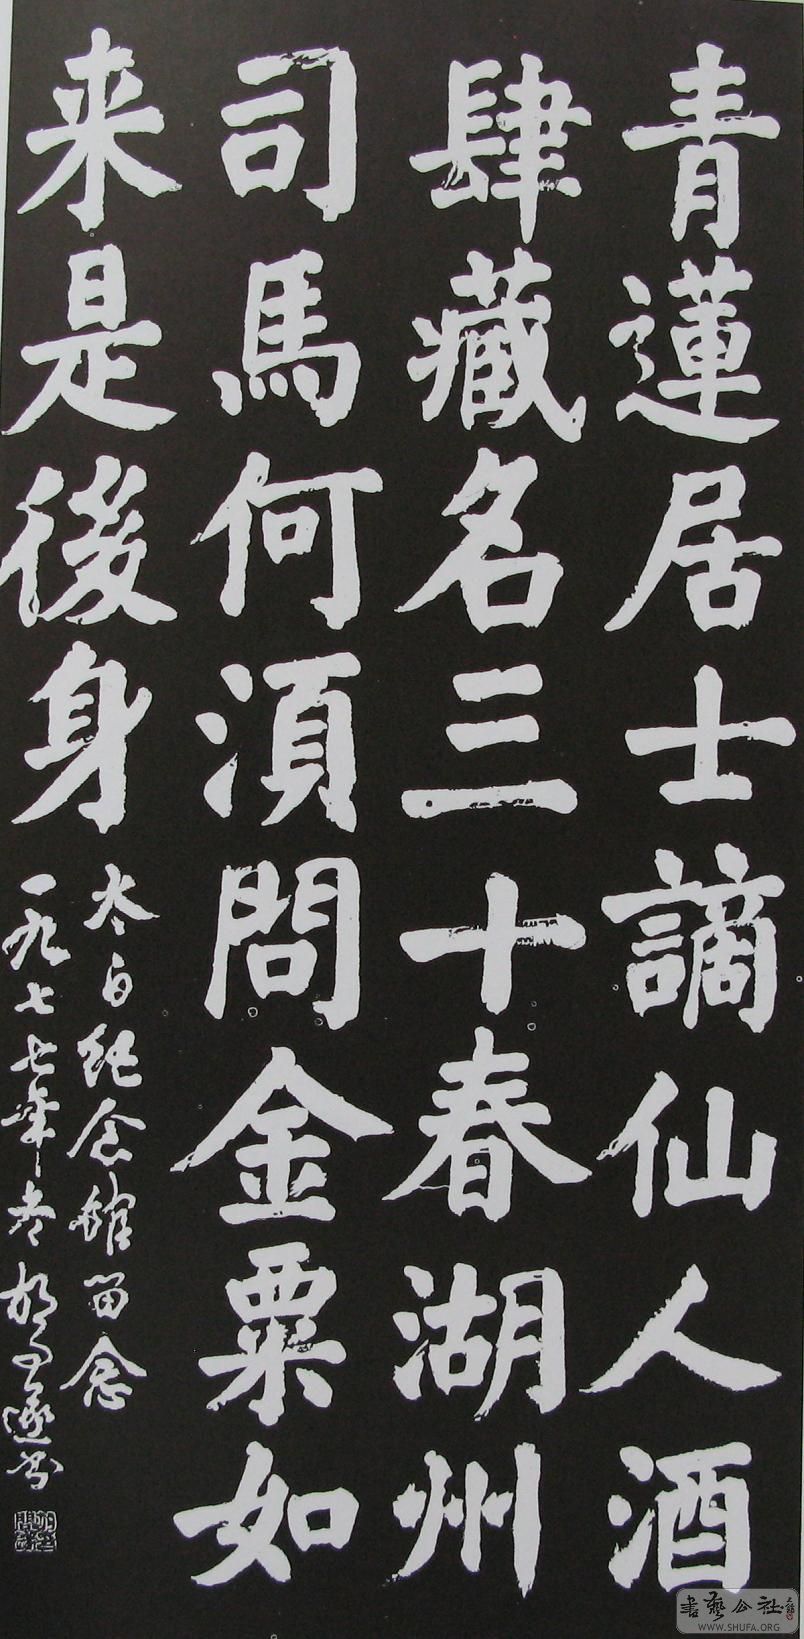 青蓮居士謫仙人酒
肆藏名三十春湖州
司馬何須問金粟如
来是後身
太白纪念館留念
一九七七年冬胡问遂書
書藝公社
WWW.SHUFA.ORG